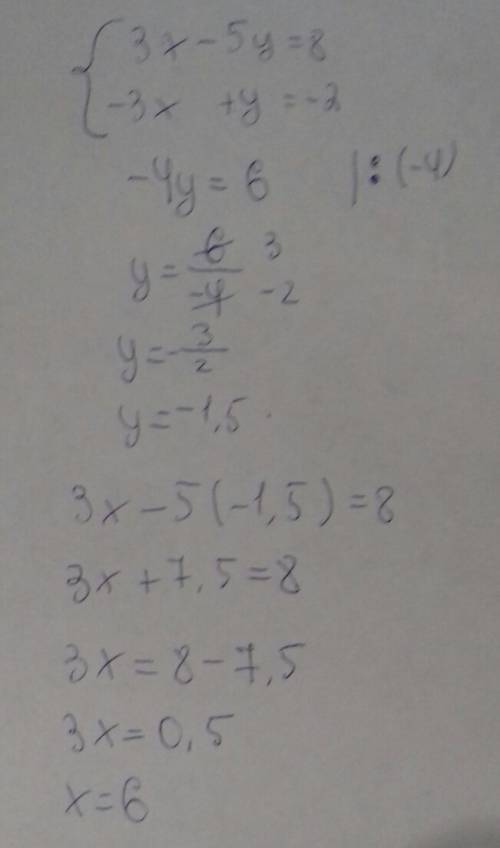 3x - 5y = 8
-3x + y = -2
-4y = 6 |:(-4)
y = 6/-4 3/-2
y = -3/2
y = -1,5.
3x - 5(-1,5) = 8
3x + 7,5 = 8
3x = 8 - 7,5
3x = 0,5
x = 6